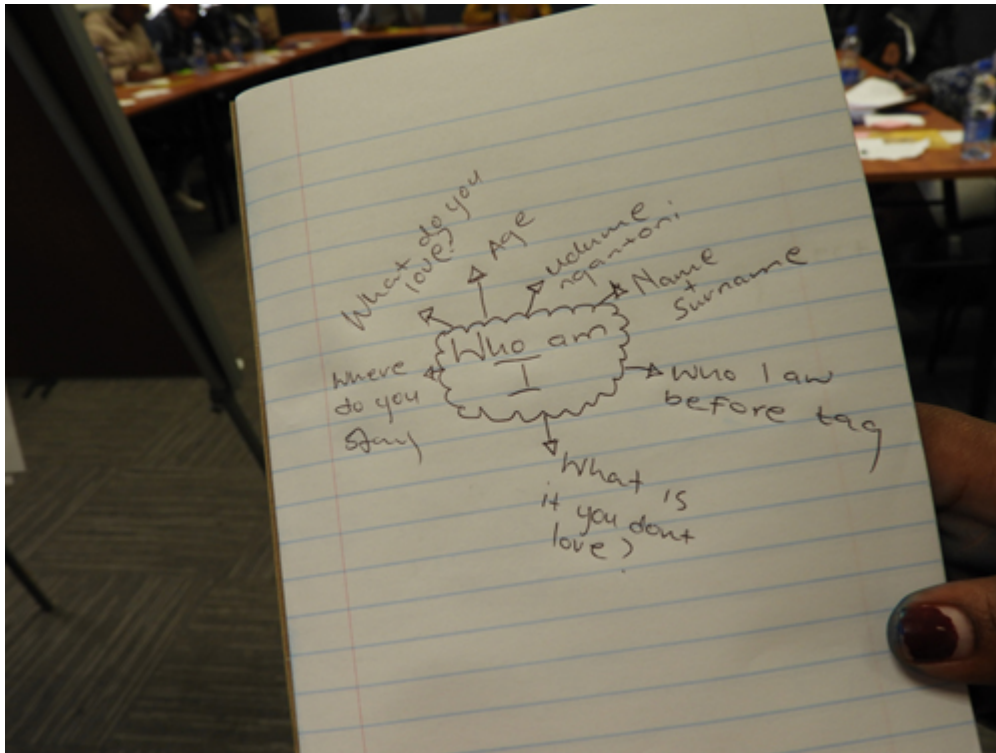 Who am
I
What do you
love?
Age
udume
nganton:
Name
+
Surname
Who I aw
before tag
What is
it you dont
love?
Where
do you
stay